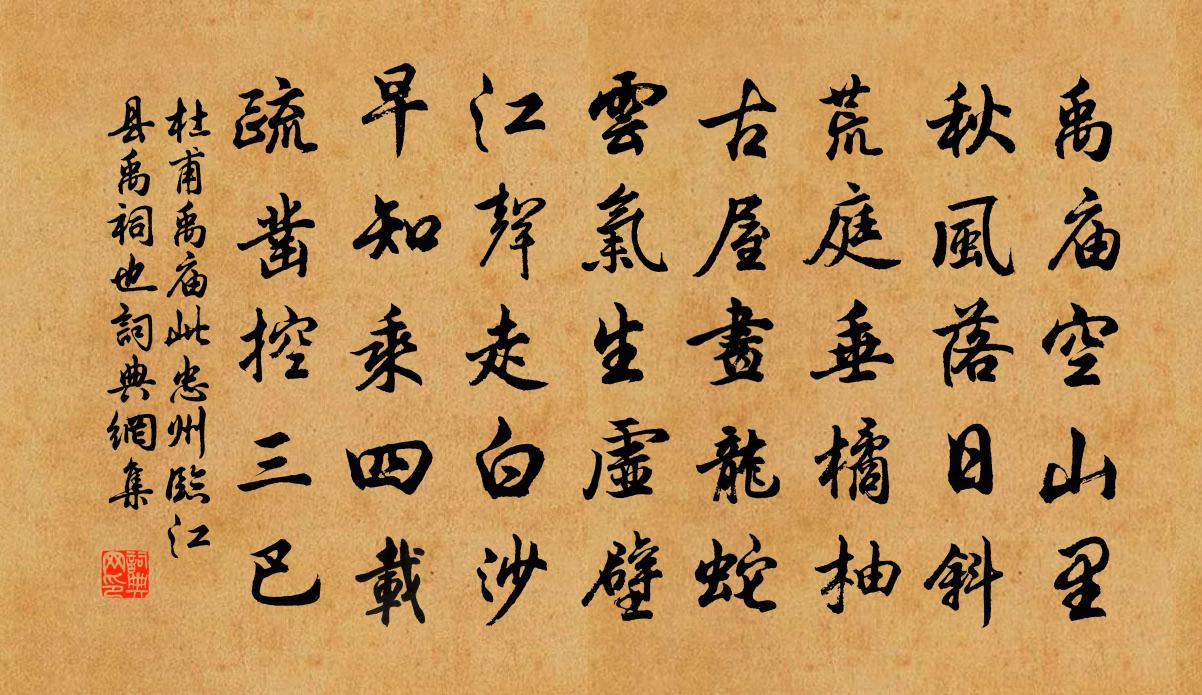 禹庙空山里
秋風落日斜
荒庭垂橘柚
古屋畫龍蛇
雲氣生虛壁
江聲走白沙
早知乘四載
疏凿控三巴
杜甫禹庙此忠州臨江
县禹祠也詞典網集
詞典网印